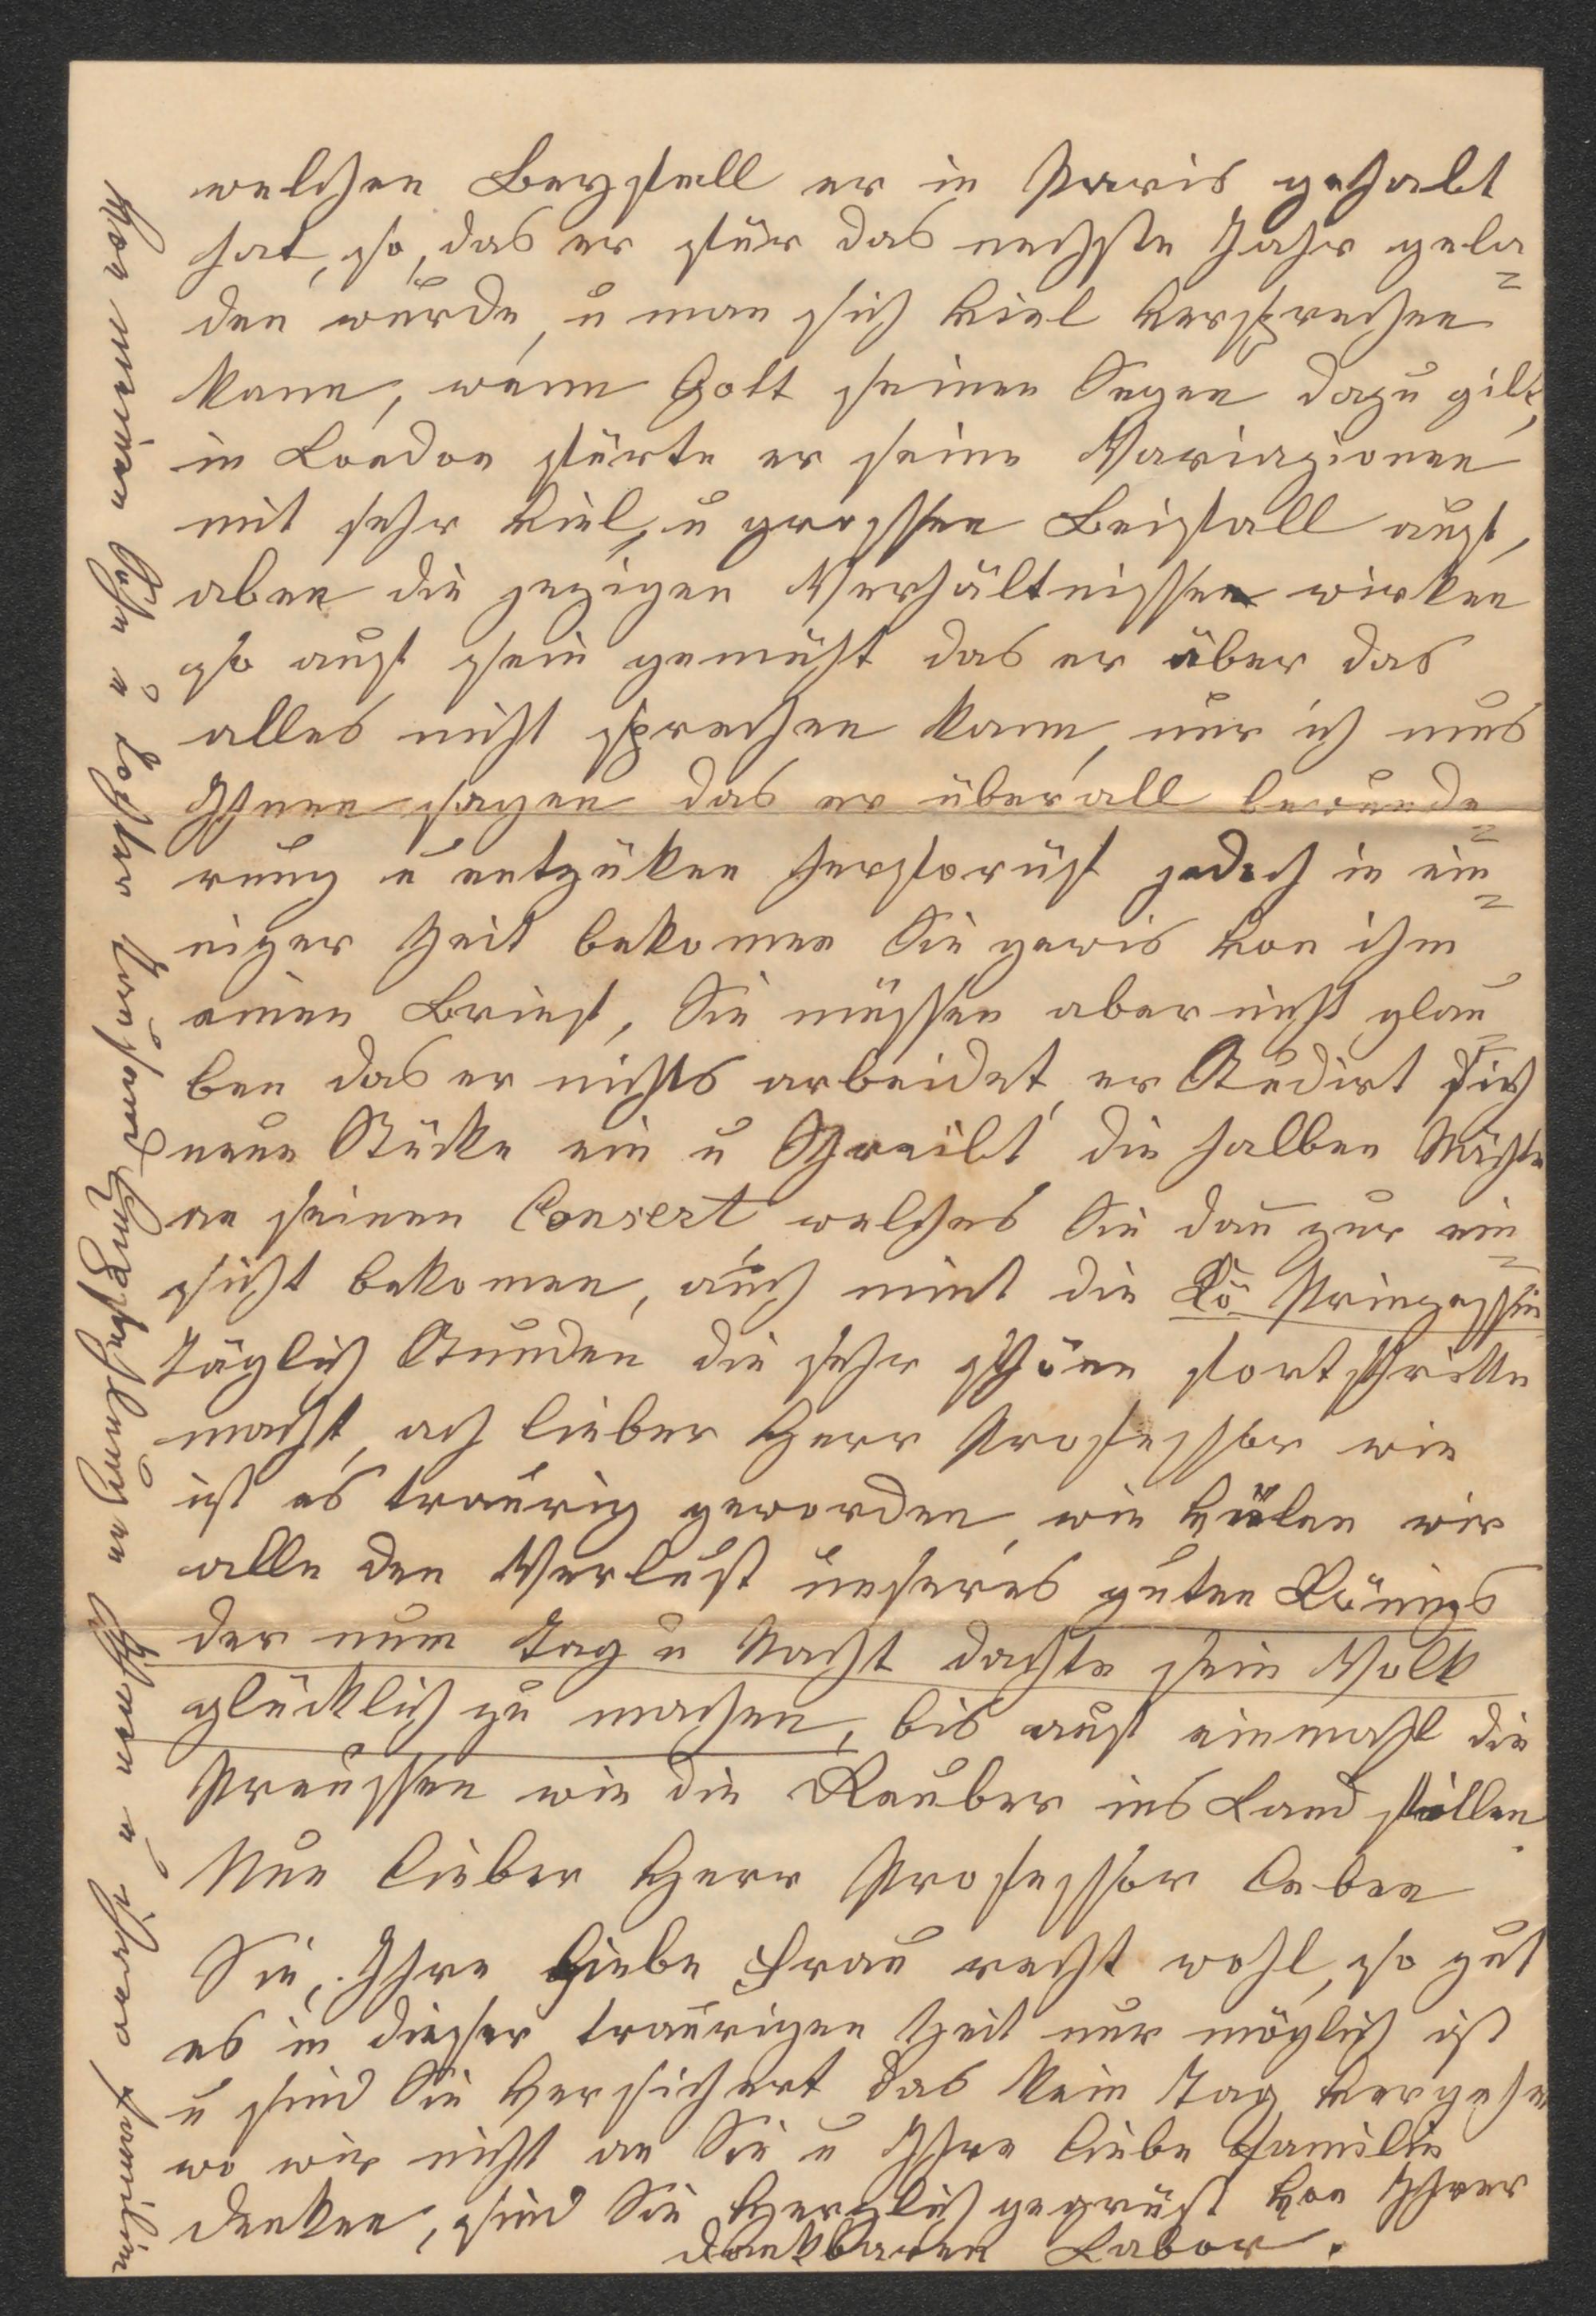 welchen Beyfall er in Paris gehabt
hat, so, das er für das nechste Jahr gela=
den wurde, u man sich viel versprechen
kann, wenn Gott seinen Segen dazu gibt,
in London fürte er seine Variazionen
mit sehr viel, u grossen Beifall auf,
aben die jezigen Verhältnissen wirken
so auf sein gemüht das er über das
alles nicht sprechen kann, nur ich mus
Ihnen sagen das er überall bewunde=
rung u entzüken herforruft jedoch in ein=
niger Zeit bekomen Sie gewis von ihm
einen Brief, Sie müssen aber nicht glau=
ben das er nichts arbeidet, er Studirt sich
neue Stücke ein u Schreibt die halben Nächte
an seinen Consert, welches Sie dan zur ein=
sicht bekomen, auch nimt die Kö Prinzessin
täglich Stunden die sehr schöne fortschritte
macht, ach lieber Herr Professor wie
ist es traurig geworden, wie vülen wir
alle den Verlust unseres guten Königs
der nur Tag u Nacht dachte sein Volk
glücklich zu machen, bis auf einmahl die
Preussen wie die Rauber ins Land fillen.
Nun lieber Herr Professor leben
Sie, Ihre Liebe Frau recht wohl, so gut
es in dieser traurigen Zeit nur möglich ist
u sind Sie versichert das kein Tag vergeht
wo wir nicht an Sie u Ihre liebe Familie
denken, sind Sie Herzlich gegrüst von Ihrer
dankbaren Labor.
von meinen Sohn u Tochter tausend Empfehlungen Ihnen u ihrer Familie